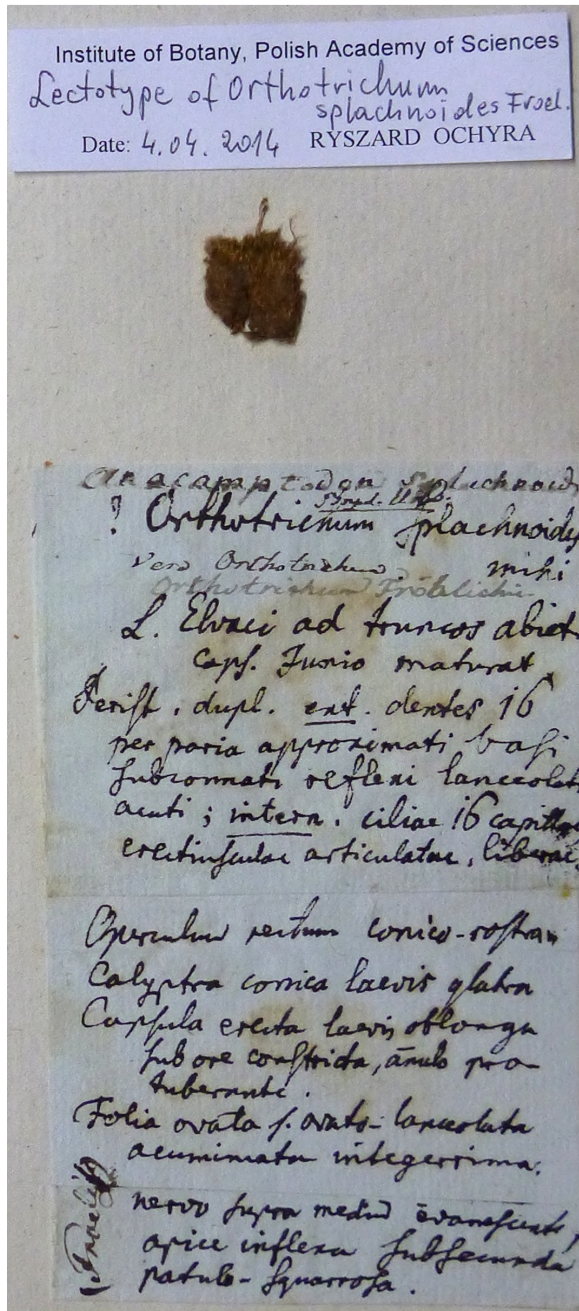 Institute of Botany, Polish Academy of Sciences
Lectotype of Orthotrichum
splachnoides Froel.
Date: 4.04. 2014 RYSZARD OCHYRA
Anacamptodon Splachnoid
? Orthotrichum splachnoides
vero Orthotrichum mihi
Orthotrichum Frölichii
L. Elvaci ad truncos abiet
Caps. Junio maturat
Perist. dupl. ext. dentes 16
per paria approximati basi
subconnati reflexi lanceolati
acuti; intern. ciliae 16 capilla
erectiusculae articulatae, liberae
Operculum rectum conico-rostra
Calyptra conica laevis glabra
Capsula erecta laevis oblonga
sub ore constricta, anulo pro-
tuberante.
Folia ovata s. ovato-lanceolata
acuminata integerrima.
nervo supra mediū ēvanescente,
apice inflexa subsecunda
patulo-squarrosa.
Froelich